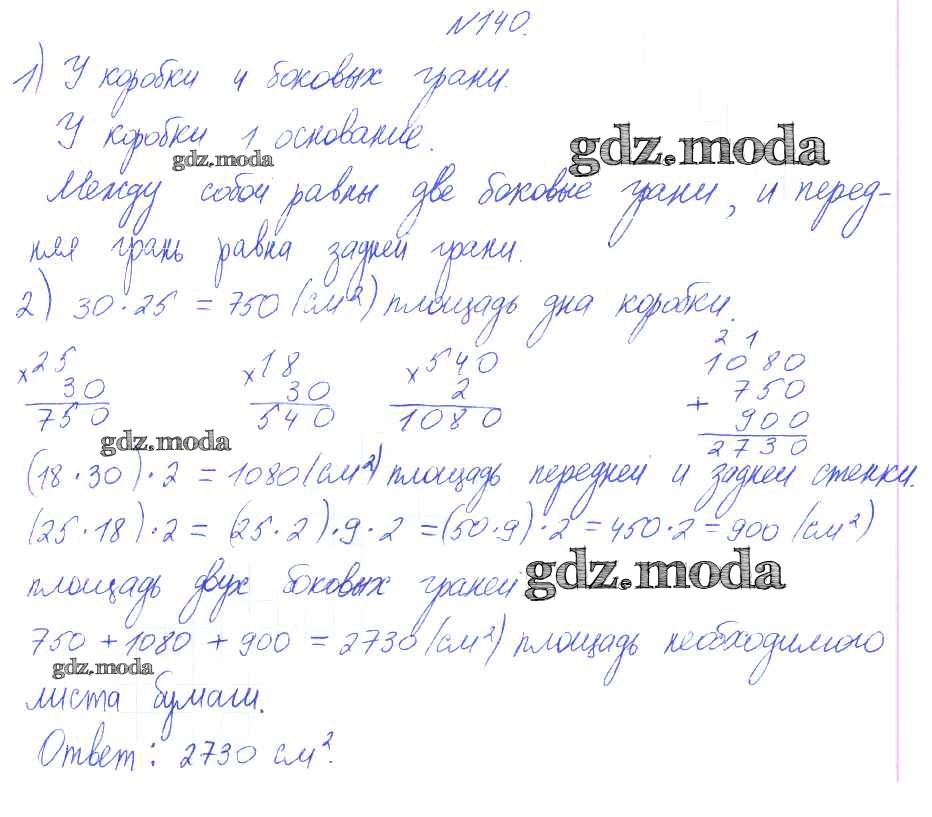 №140.
1) У коробки 4 боковых грани.
У коробки 1 основание.
gdz.moda
gdz.moda
Между собой равны две боковые грани, и перед-
няя грань равна задней грани.
2) 30·25 = 750 (см²) площадь дна коробки.
×25 ×18 ×540 2 1
30 30 2 1080
750 540 1080 + 750
900
gdz.moda 2730
(18·30)·2 = 1080 (см²) площадь передней и задней стенки.
(25·18)·2 = (25·2)·9·2 = (50·9)·2 = 450·2 = 900 (см²)
площадь двух боковых граней
gdz.moda
750 + 1080 + 900 = 2730 (см²) площадь необходимого
gdz.moda
листа бумаги.
Ответ: 2730 см².